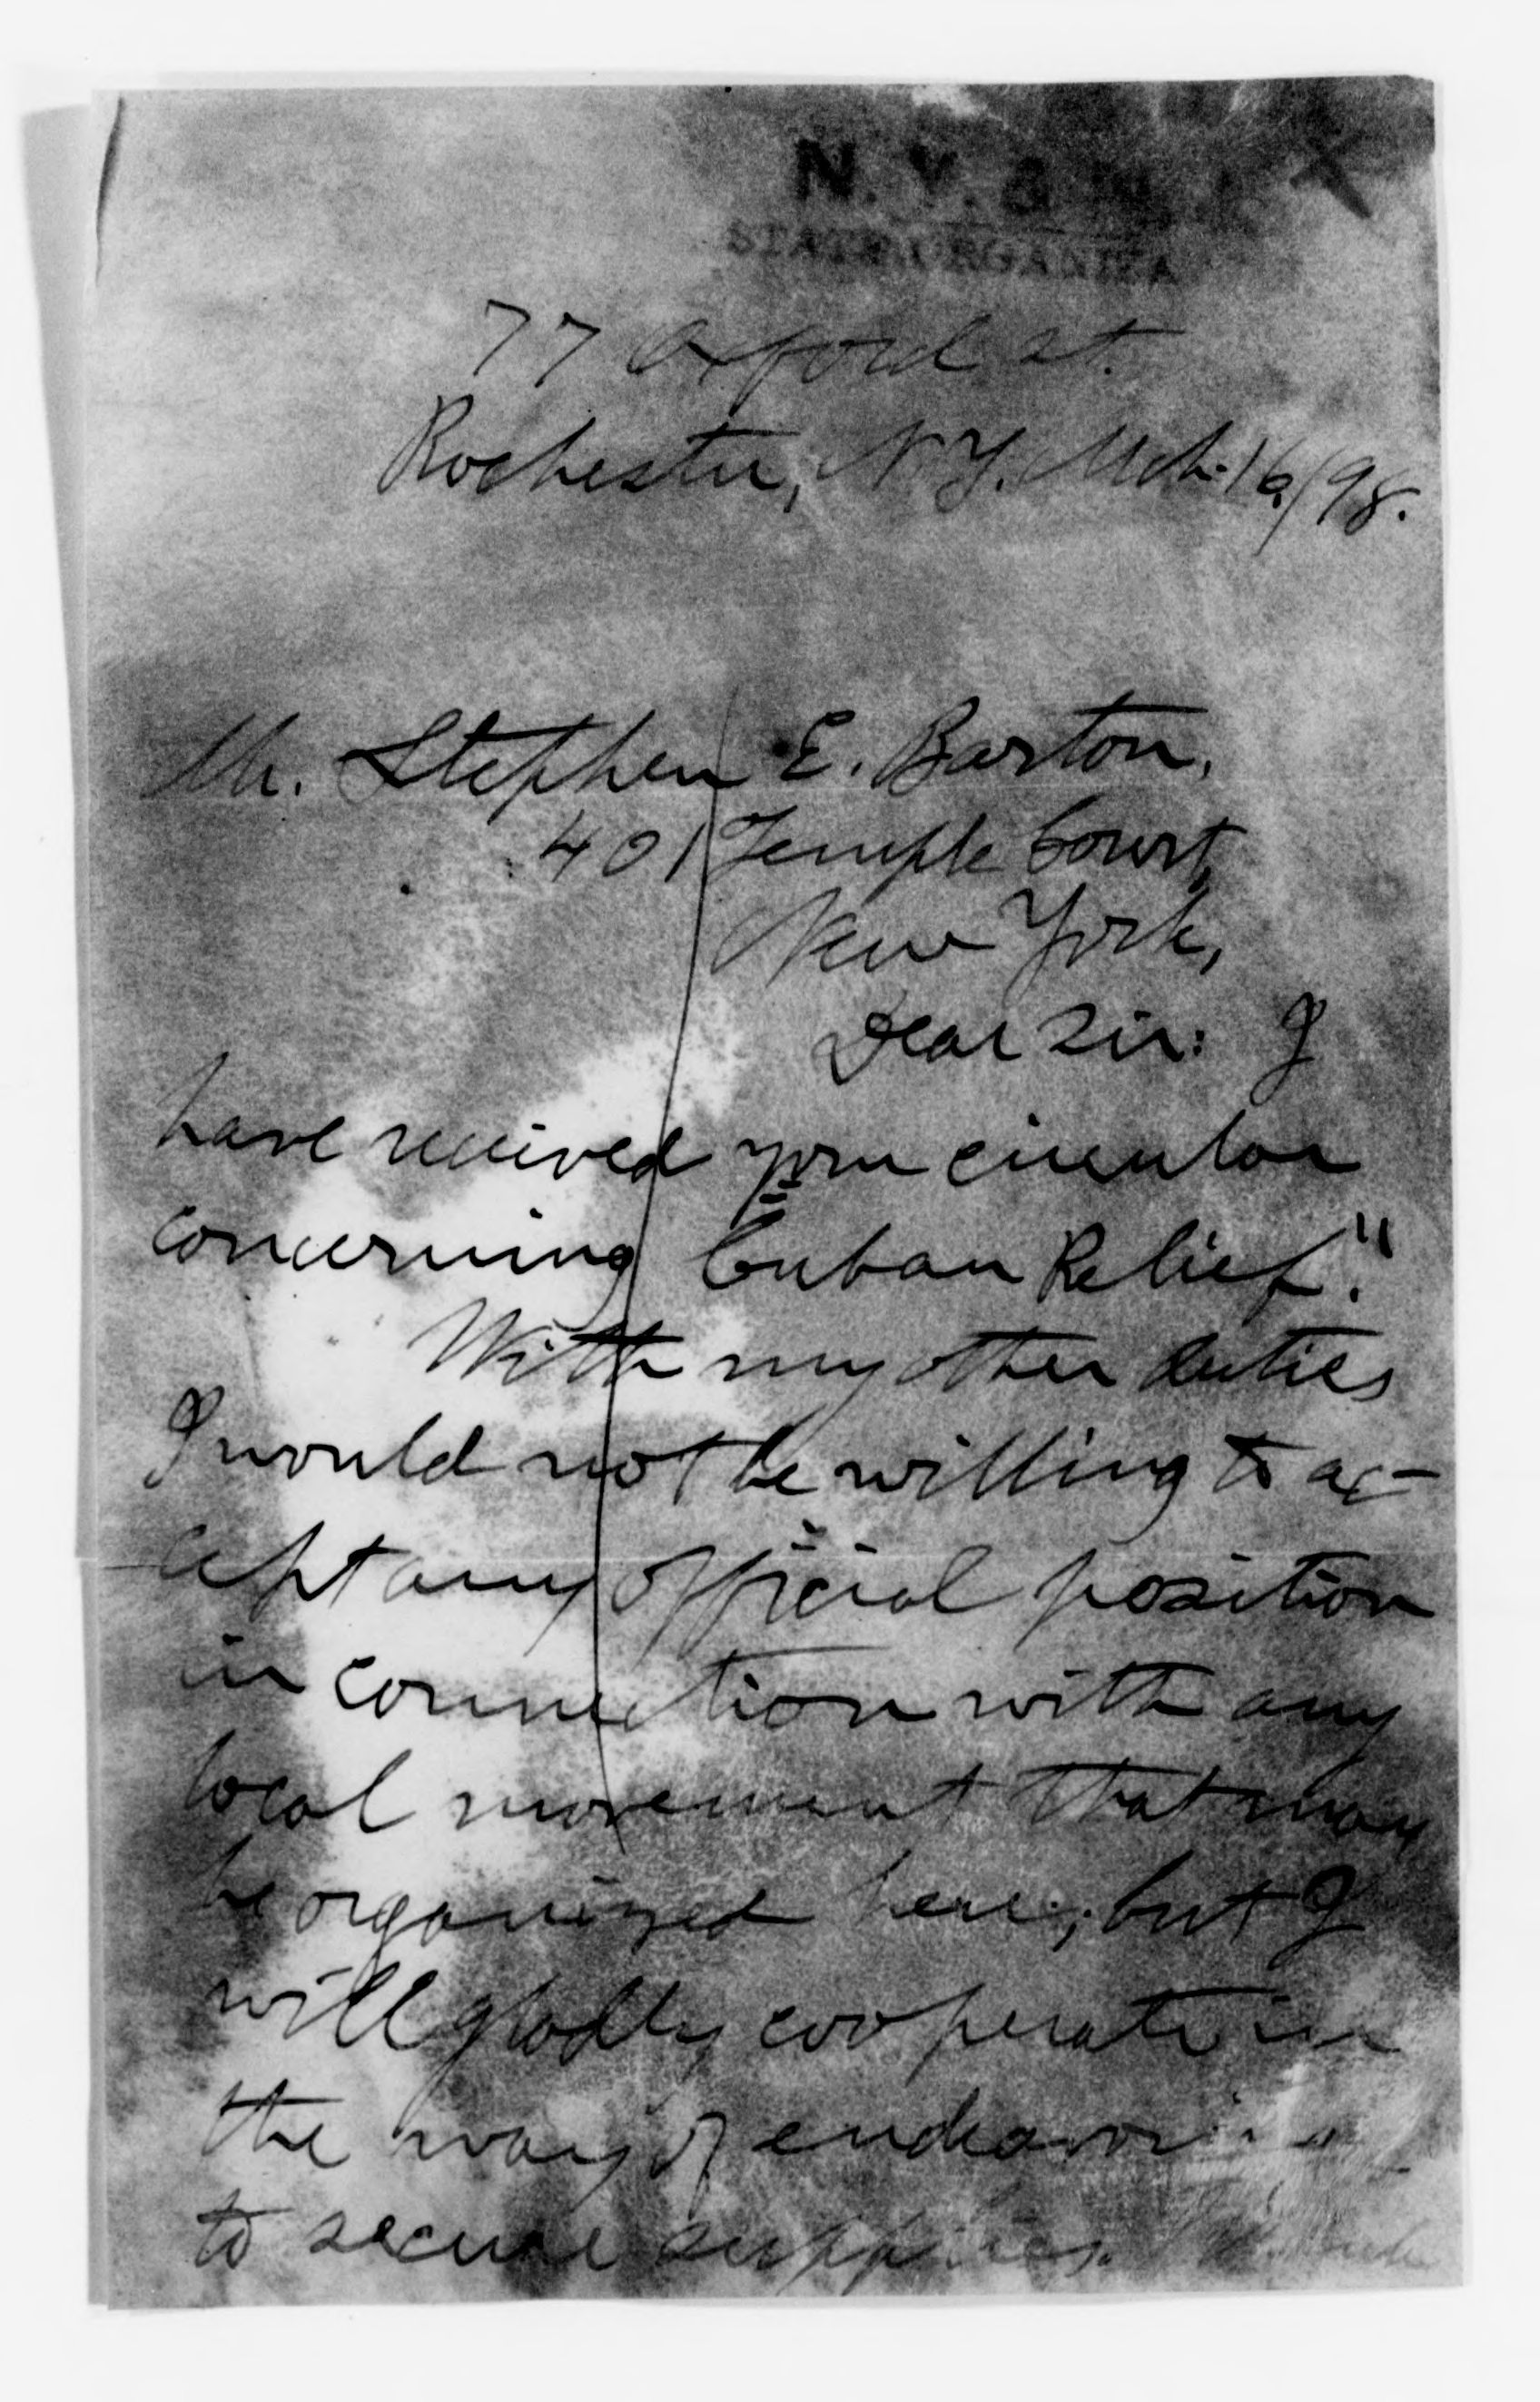 N. Y. &
STATE ORGANIZA
77 Oxford St.
Rochester, N.Y. Mch. 16/98.
Mr. Stephen E. Barton,
401 Temple Court,
New York,
Dear Sir: I
have received your circular
concerning "Cuban Relief."
With my other duties
I would not be willing to ac-
cept any official position
in connection with any
local movement that may
be organized here; but I
will gladly cooperate in
the way of endeavoring
to secure supplies.